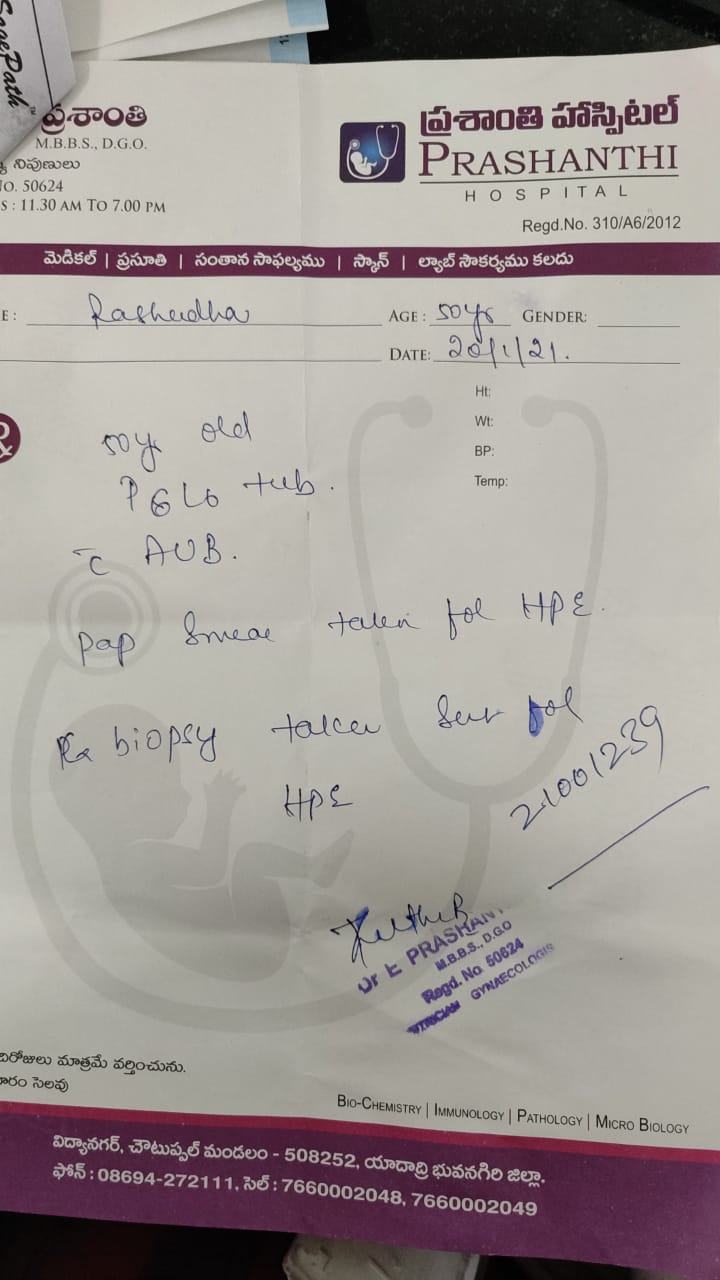 SagePath™
ప్రశాంతి
M.B.B.S., D.G.O.
నిపుణులు
NO. 50624
S : 11.30 AM TO 7.00 PM
ప్రశాంతి హాస్పిటల్
PRASHANTHI
HOSPITAL
Regd.No. 310/A6/2012
మెడికల్ | ప్రసూతి | సంతాన సాఫల్యము | స్కాన్ | ల్యాబ్ సౌకర్యము కలదు
E :
AGE : 50yrs GENDER:
DATE: 20/1/21.
Ht:
Wt:
BP:
Temp:
50yr old
P6L6 tub.
c̄ AUB.
Pap Smear taken for HPE.
biopsy taken Sent for
HPE
21001239
Dr E PRASHAN
M.B.B.S., D.G.O
Regd. No. 50624
GYNAECOLOGIS
మాత్రమే వర్తించును.
సెలవు
BIO-CHEMISTRY | IMMUNOLOGY | PATHOLOGY | MICRO BIOLOGY
విద్యానగర్, చౌటుప్పల్ మండలం - 508252, యాదాద్రి భువనగిరి జిల్లా.
ఫోన్ : 08694-272111, సెల్ : 7660002048, 7660002049